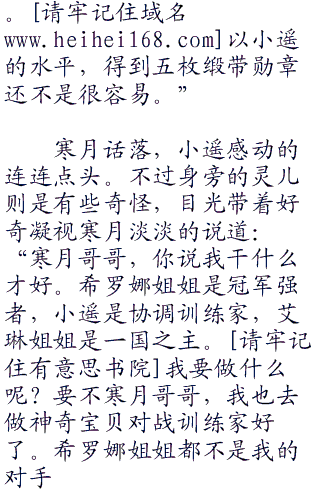 。[请牢记住域名
www.heihei168.com]以小遥
的水平，得到五枚缎带勋章
还不是很容易。”
寒月话落，小遥感动的
连连点头。不过身旁的灵儿
则是有些奇怪，目光带着好
奇凝视寒月淡淡的说道：
“寒月哥哥，你说我干什么
才好。希罗娜姐姐是冠军强
者，小遥是协调训练家，艾
琳姐姐是一国之主。[请牢记
住有意思书院]我要做什么
呢？要不寒月哥哥，我也去
做神奇宝贝对战训练家好
了。希罗娜姐姐都不是我的
对手